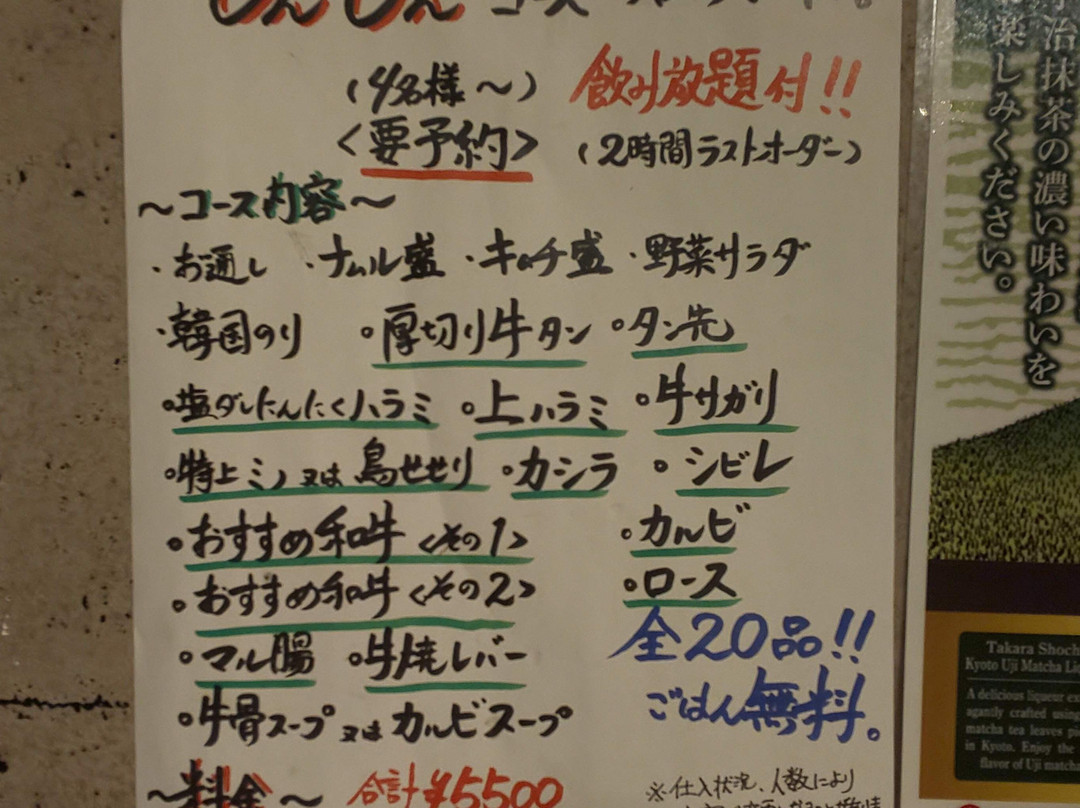 コース
(4名様〜) 飲み放題付!!
<要予約> (2時間ラストオーダー)
〜コース内容〜
・お通し ・ナムル盛 ・キムチ盛 ・野菜サラダ
・韓国のり ・厚切り牛タン ・タン先
・塩ダレにんにくハラミ ・上ハラミ ・牛サガリ
・特上ミノ又は鳥せせり ・カシラ ・シビレ
・おすすめ和牛<その1> ・カルビ
・おすすめ和牛<その2> ・ロース
・マル腸 ・牛焼レバー
・牛骨スープ又はカルビスープ
全20品!!
ごはん無料。
〜料金〜 合計¥5500
※仕入状況、人数により
宇治抹茶の濃い味わいを
楽しみください。
Takara Shoch
Kyoto Uji Matcha Li
A delicious liqueur ex
agantly crafted using
matcha tea leaves pi
in Kyoto. Enjoy the
flavor of Uji matcha